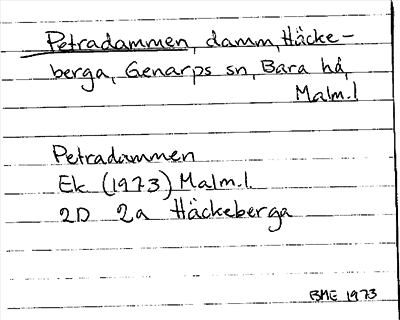 Petradammen, damm, Häcke-
berga, Genarps sn, Bara hd,
Malm.l
Petradammen
Ek (1973) Malm.l.
2D 2a Häckeberga
BME 1973